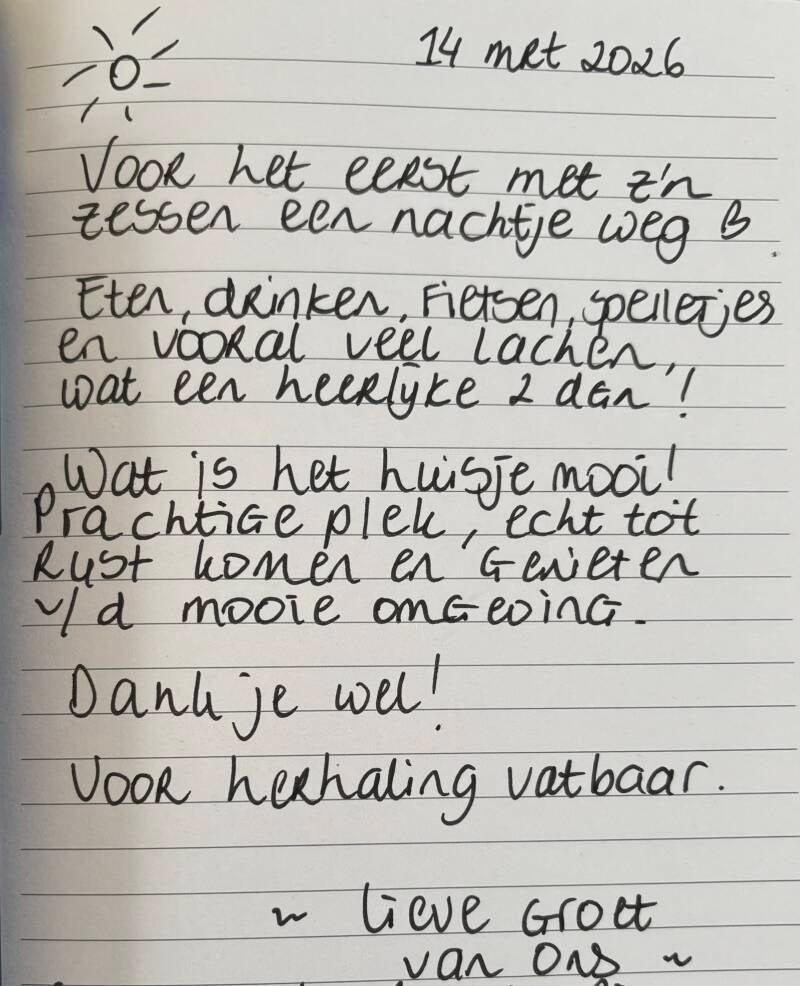 14 mrt 2026
Voor het eerst met z'n
zessen een nachtje weg
Eten, drinken, fietsen, spelletjes
en vooral veel lachen,
wat een heerlijke 2 dgn!
Wat is het huisje mooi!
Prachtige plek, echt tot
Rust komen en genieten
v/d mooie omgeving.
Dank je wel!
Voor herhaling vatbaar.
~ lieve Groet
van ons ~